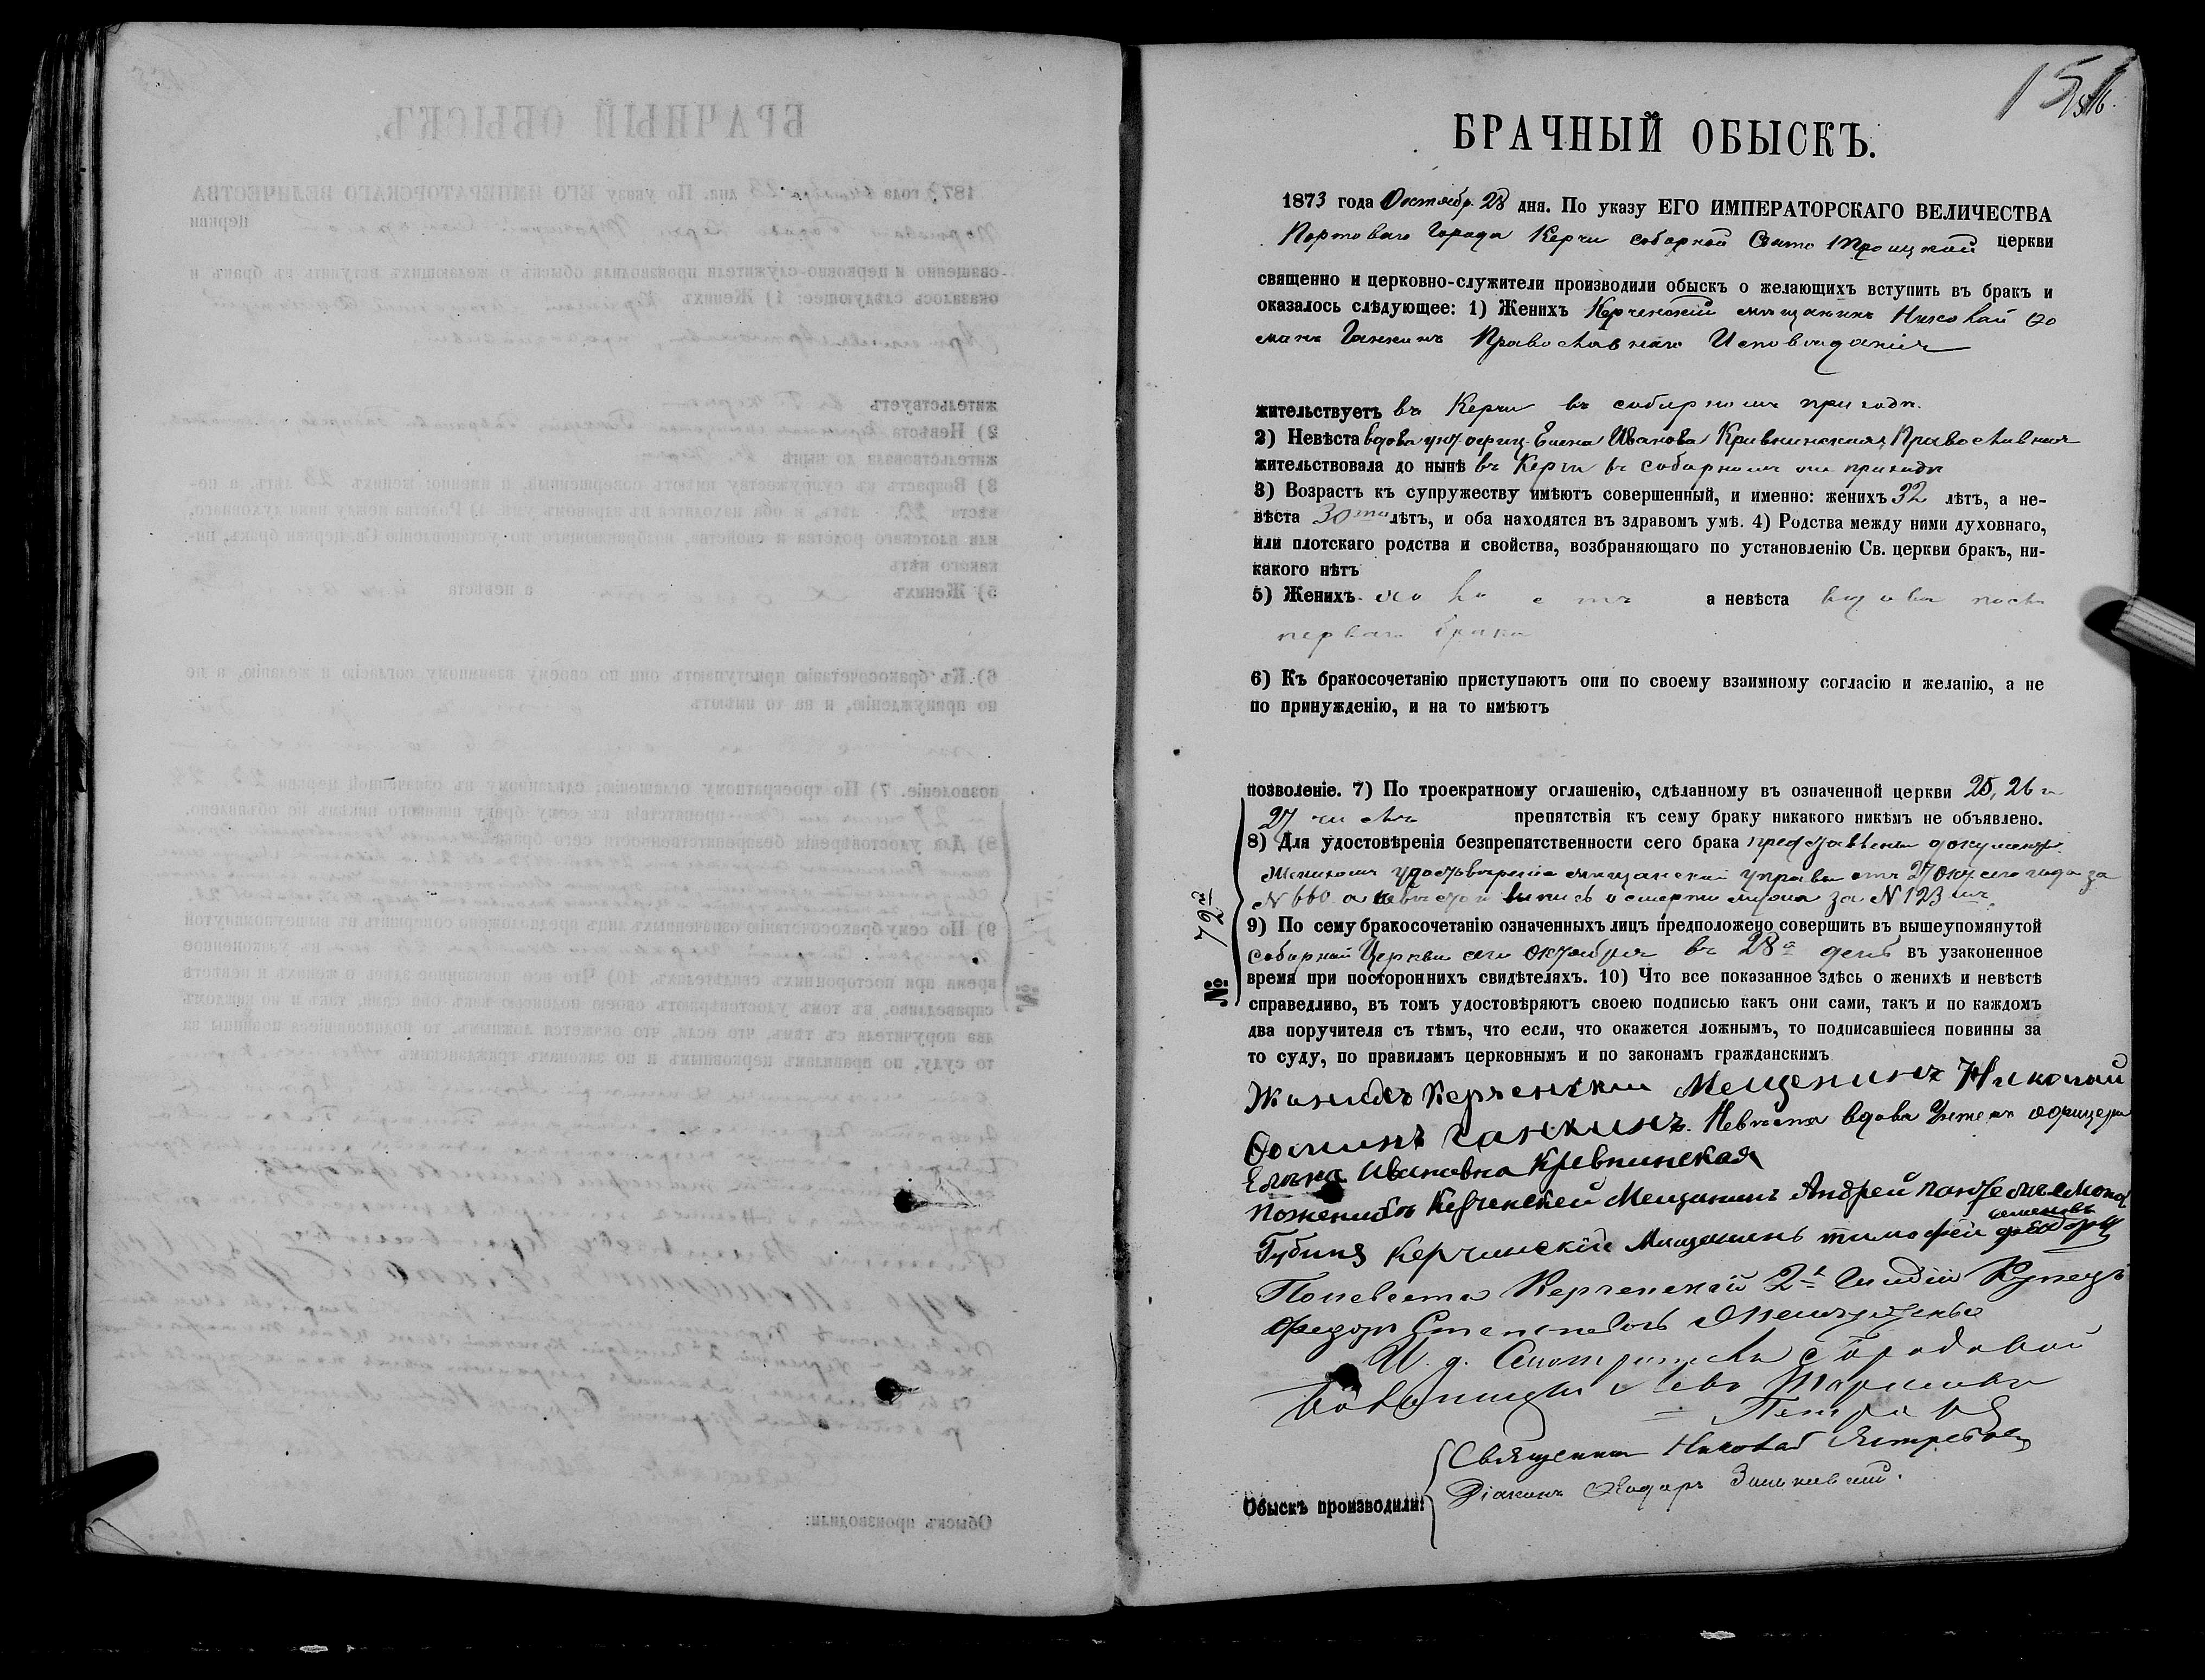 151
БРАЧНЫЙ ОБЫСКЪ.
1873 года Октябр. 28 дня. По указу ЕГО ИМПЕРАТОРСКАГО ВЕЛИЧЕСТВА
Портоваго Города Керчи соборной Свято Троицкой церкви
священно и церковно-служители производили обыскъ о желающихъ вступить въ бракъ и
оказалось слѣдующее: 1) Женихъ Керченскій мѣщанинъ Николай Ѳо
минъ Ганжинъ Православнаго Исповѣданія
жительствуетъ въ Керчи въ соборномъ приходѣ.
2) Невѣста вдова унт. офиц. Елена Иванова Кривнинская, Православная
жительствовала до нынѣ въ Керчи въ соборномъ приходѣ
3) Возрастъ къ супружеству имѣютъ совершенный, и именно: женихъ 32 лѣтъ, а не-
вѣста 30ти лѣтъ, и оба находятся въ здравомъ умѣ. 4) Родства между ними духовнаго,
или плотскаго родства и свойства, возбраняющаго по установленію Св. церкви бракъ, ни-
какого нѣтъ
5) Женихъ холостъ а невѣста вдова послѣ
перваго брака
6) Къ бракосочетанію приступаютъ они по своему взаимному согласію и желанію, а не
по принужденію, и на то имѣютъ
позволеніе. 7) По троекратному оглашенію, сдѣланному въ означенной церкви 25, 26 и
27 числъ препятствія къ сему браку никакого никѣмъ не объявлено.
8) Для удостовѣренія безпрепятственности сего брака представлены документы.
Женихомъ удостовѣреніе мѣщанской управы отъ 27 окт. сего года за
N 660 а невѣстой выпись о смерти мужа за N 123
9) По сему бракосочетанію означенныхъ лицъ предположено совершить въ вышеупомянутой
соборной Церкви сего октября въ 28й день въ узаконенное
№ 72й
время при постороннихъ свидѣтеляхъ. 10) Что все показанное здѣсь о женихѣ и невѣстѣ
справедливо, въ томъ удостовѣряютъ своею подписью какъ они сами, такъ и по каждомъ
два поручителя съ тѣмъ, что если, что окажется ложнымъ, то подписавшіеся повинны за
то суду, по правиламъ церковнымъ и по законамъ гражданскимъ
Женихъ Керченскій Мещенинъ Николай
Ѳоминъ Ганжинъ. Невѣста вдова Унтеръ офицера
Елена Ивановна Кривнинская
Поженихѣ Керченскей Мещанинъ Андрей
Губинъ Керчинскій Мещанинъ тимофей семеновъ
Поневеста Керченскій 2й Гильдіи Купецъ
Федоръ Степановъ
И. д. Смотрителя Городовой
Больницы Левъ
Петровъ
Священникъ Николай Ястребовъ
Обыскъ производили: Діаконъ Ѳеодоръ Зиньковскій.